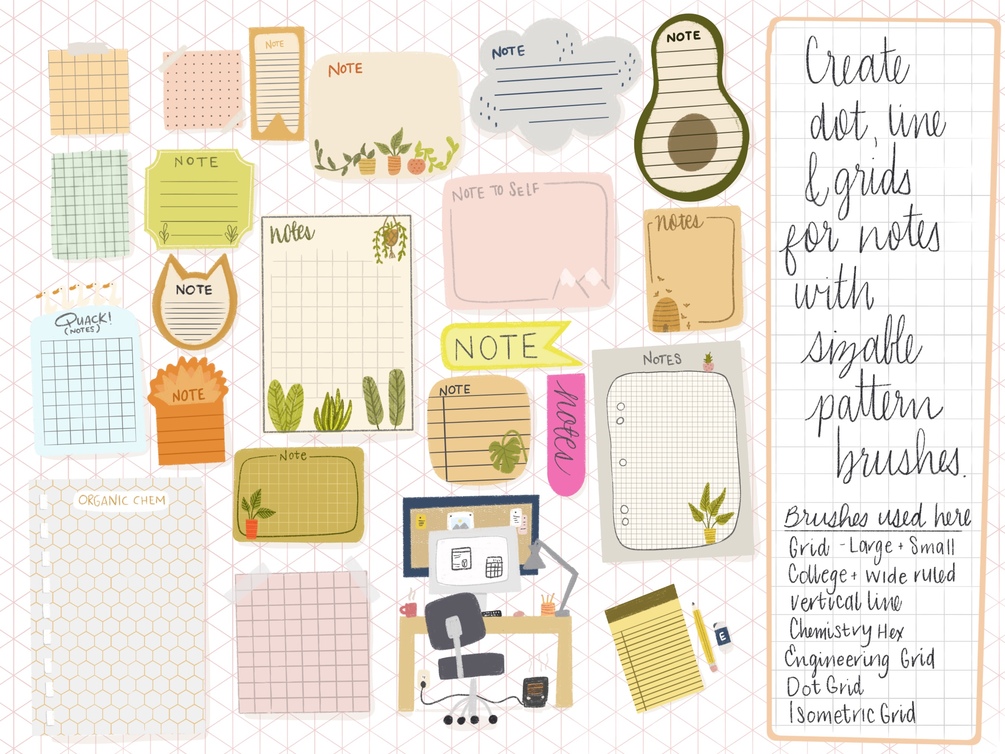 NOTE
NOTE
NOTE
NOTE
NOTE
NOTE TO SELF
notes
Notes
NOTE
QUACK!
(NOTES)
NOTE
NOTE
NOTES
NOTE
notes
Note
ORGANIC CHEM
E
Create
dot, line
& grids
for notes
with
sizable
pattern
brushes.
Brushes used here
Grid - Large + Small
College + wide ruled
vertical line
Chemistry Hex
Engineering Grid
Dot Grid
Isometric Grid